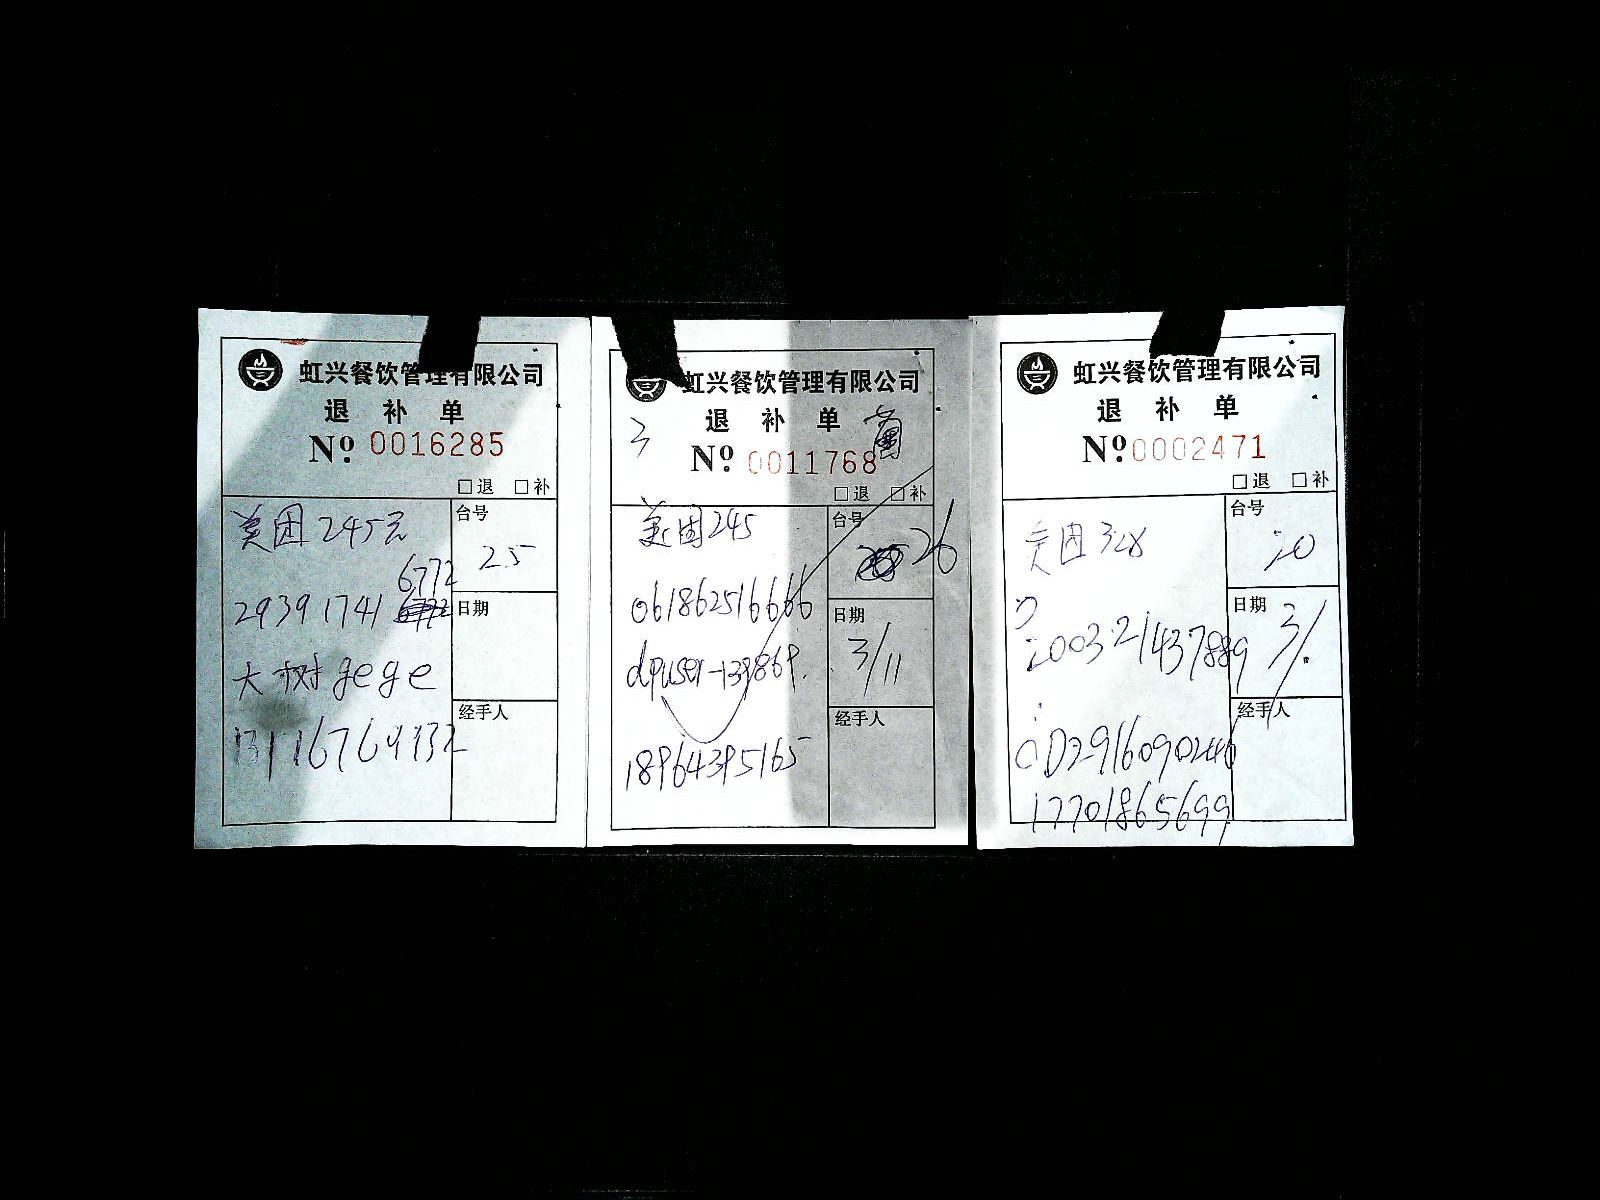 虹兴餐饮管理有限公司
退 补 单
Nº. 0016285
□退 □补
美团245元
台号
25
6772
29391741
日期
大树gege
经手人
13116769932
虹兴餐饮管理有限公司
退 补 单
3
Nº. 0011768
□退 □补
美团245
台号
26
061862516666
日期
dpuser-139869.
3/11
经手人
18964395165
虹兴餐饮管理有限公司
退 补 单
Nº. 0002471
□退 □补
美团328
台号
20
日期
3/
经手人
17701865699